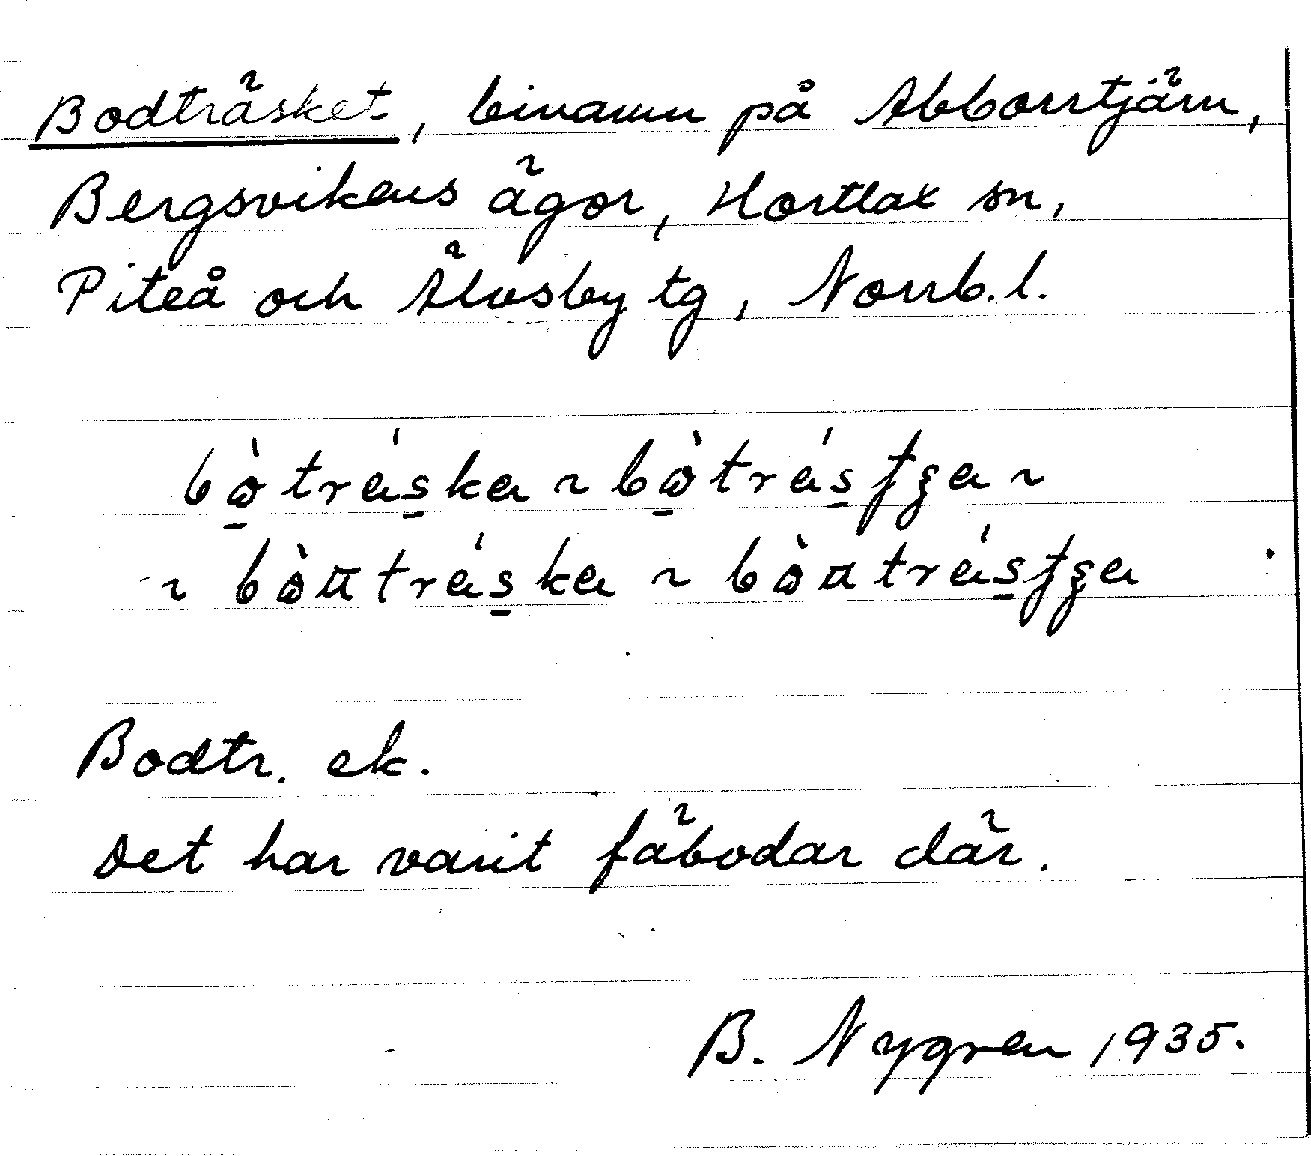 Bodträsket, binamn på Abborrtjärn,
Bergsvikens ägor, Hortlax sn,
Piteå och Älvsby tg, Norrb. l.
bò̱trá́s̱ka ~ bò̱trá́s̱ʃʒa ~
~ bòɷtrá́s̱ka ~ bòɷtrá́s̱ʃʒa
Bodtr. ek.
Det har varit fäbodar där.
B. Nygren 1935.